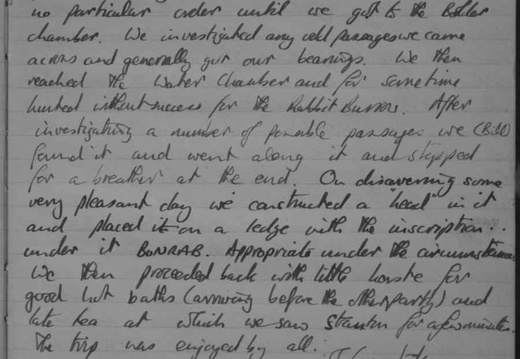 no particular order until we got to the Boulder
chamber. We investigated any old passages we came
across and generally got our bearings. We then
reached the Water Chamber and for sometime
hunted without success for the Rabbit Burrows. After
investigating a number of possible passages we (Bill)
found it and went along it and stopped
for a breather at the end. On discovering some
very pleasant clay we constructed a 'head' in it
and placed it on a ledge with the inscription..
under it BUNRAB. Appropriate under the circumstances
We then proceeded back with little haste for
good hot baths (arriving before the other party) and
late tea at which we saw Stanton for a few minutes.
The trip was enjoyed by all.